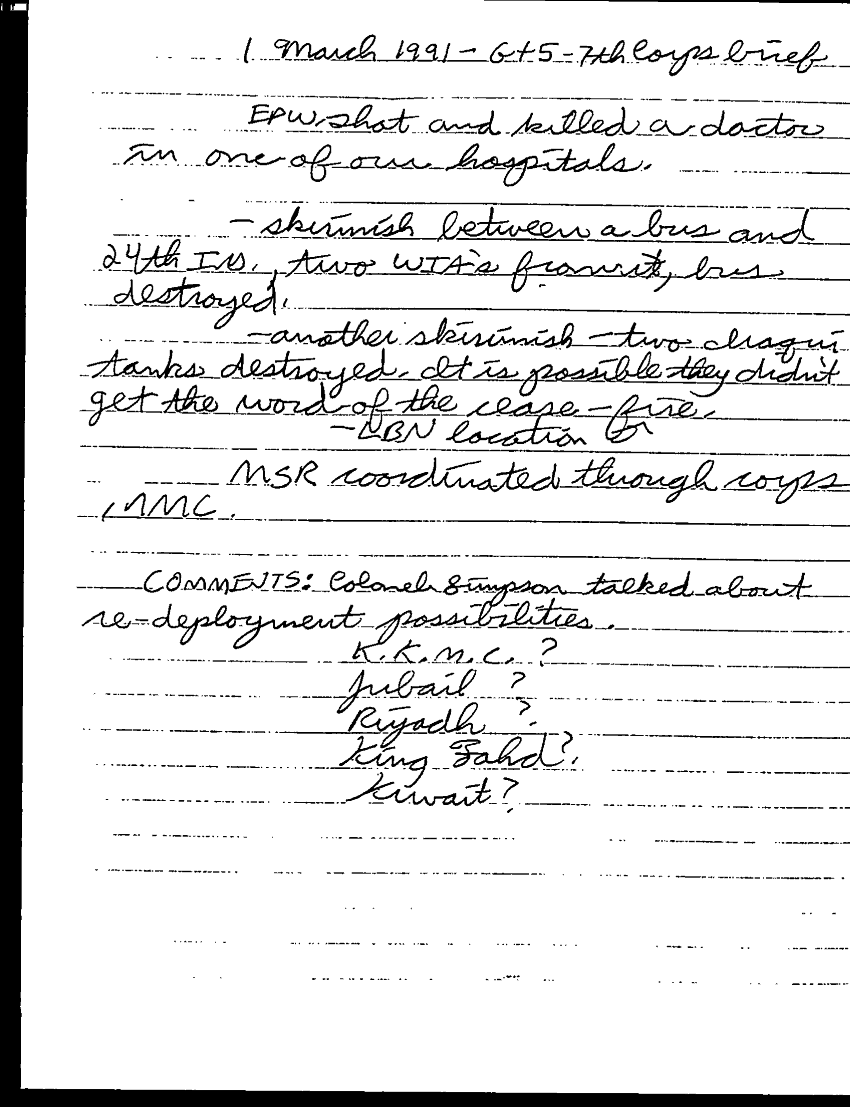 1 March 1991 - G+5 - 7th Corps brief
EPW shot and killed a doctor
in one of our hospitals.
- skirmish between a bus and
24th I.D., two WIA's from it, bus
destroyed.
- another skirmish - two Iraqui
tanks destroyed. It is possible they didn't
get the word of the cease-fire.
- BN location
MSR coordinated through corps
MMC.
COMMENTS: Colonel Simpson talked about
re-deployment possibilities.
K.K.M.C. ?
Jubail ?
Riyadh ?
King Fahd ?
Kuwait ?